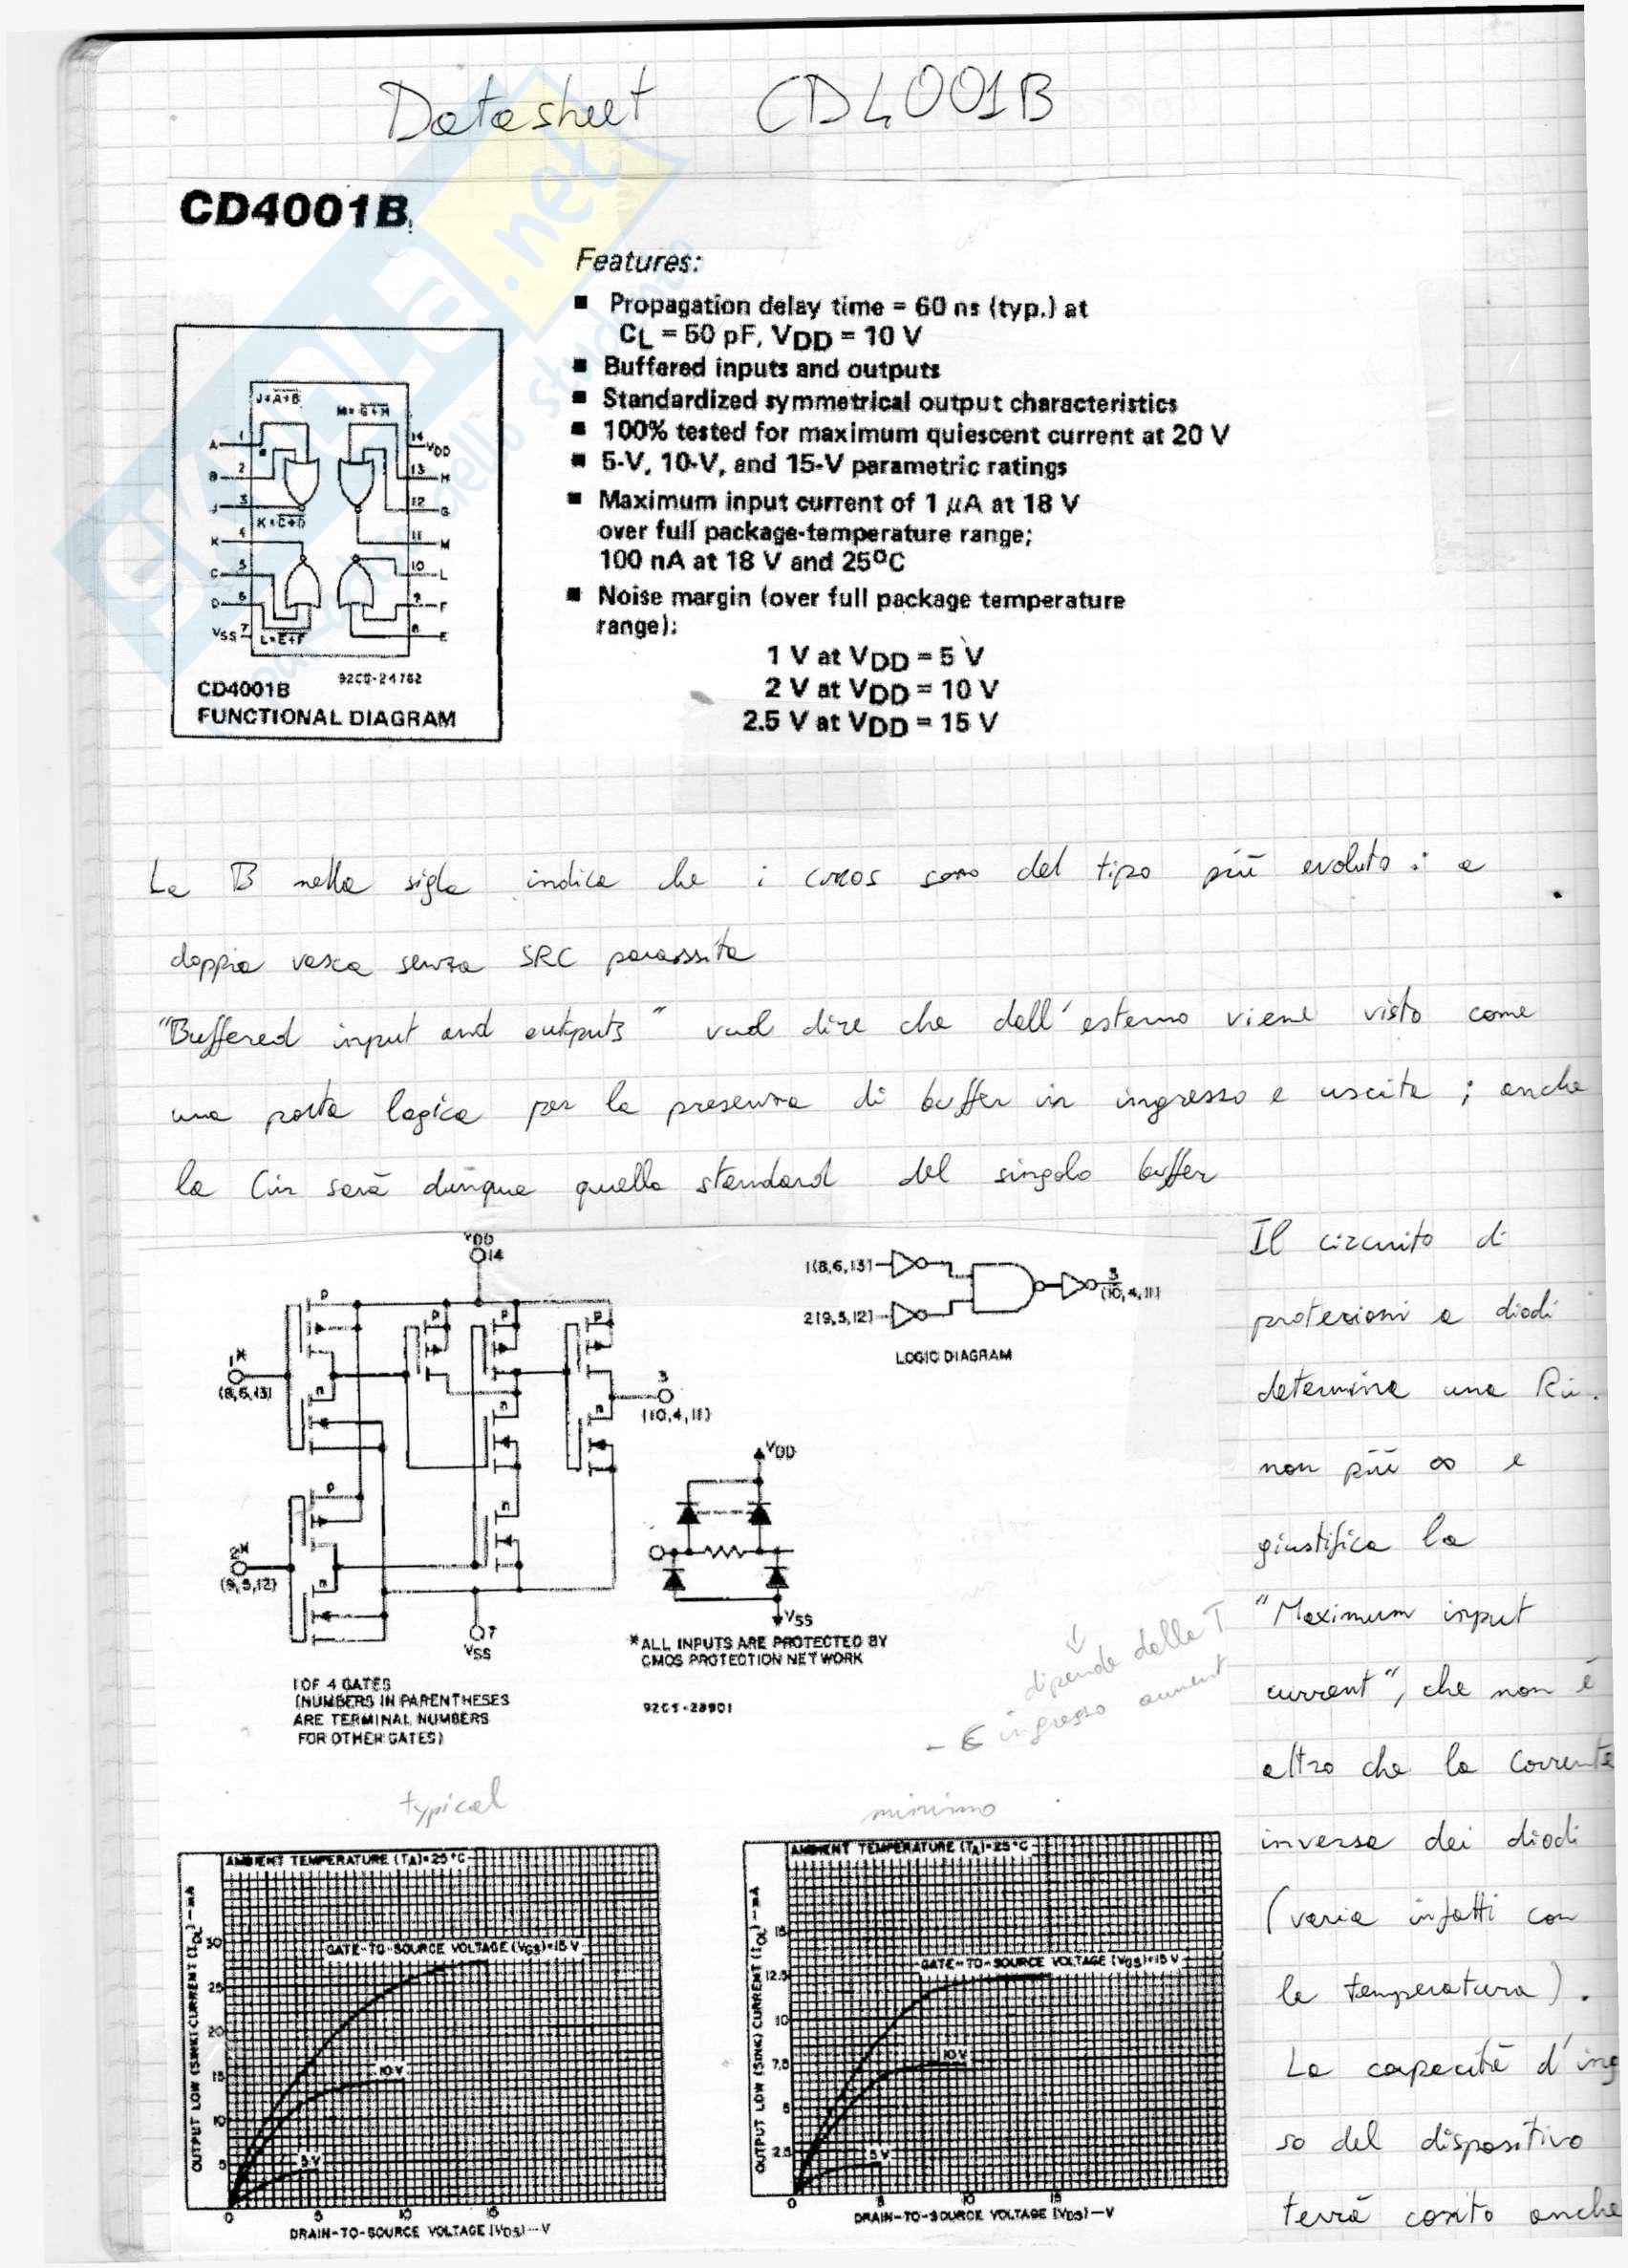 Datasheet CD4001B
CD4001B
Features:
■ Propagation delay time = 60 ns (typ.) at
CL = 50 pF, VDD = 10 V
■ Buffered inputs and outputs
■ Standardized symmetrical output characteristics
■ 100% tested for maximum quiescent current at 20 V
■ 5-V, 10-V, and 15-V parametric ratings
■ Maximum input current of 1 μA at 18 V
over full package-temperature range;
100 nA at 18 V and 25ºC
■ Noise margin (over full package temperature
range):
1 V at VDD = 5 V
2 V at VDD = 10 V
2.5 V at VDD = 15 V
J=A+B
M=G+H
A 1
B 2
J 3
K=C+D
K 4
C 5
D 6
VSS 7
L=E+F
14 VDD
13 H
12 G
11 M
10 L
9 F
8 E
92CS-24762
CD4001B
FUNCTIONAL DIAGRAM
SKUOLA.net
La B nella sigla indica che i CMOS sono del tipo più evoluto: a
doppia vasca senza SRC parassita
"Buffered input and outputs" vuol dire che dall'esterno viene visto come
una porta logica per la presenza di buffer in ingresso e uscita; anche
la Cin sarà dunque quella standard del singolo buffer
VDD
14
1*
(8,6,13)
2*
(9,5,12)
3
(10,4,11)
7
VSS
1(8,6,13)
2(9,5,12)
3
(10,4,11)
LOGIC DIAGRAM
VDD
VSS
*ALL INPUTS ARE PROTECTED BY
CMOS PROTECTION NETWORK
1 OF 4 GATES
(NUMBERS IN PARENTHESES
ARE TERMINAL NUMBERS
FOR OTHER GATES)
92CS-28901
dipende dalla T
ingresso aument
Il circuito di
protezioni a diodi
determina una Rin
non più ∞ e
giustifica la
"Maximum input
current", che non è
altro che la corrente
inversa dei diodi
(varia infatti con
la temperatura).
La capacità d'ing
so del dispositivo
terrà conto anche
typical
AMBIENT TEMPERATURE (TA)=25°C
GATE-TO-SOURCE VOLTAGE (VGS)=15 V
10 V
5 V
OUTPUT LOW (SINK) CURRENT (IOL)—mA
30
25
20
15
10
5
0 5 10 15
DRAIN-TO-SOURCE VOLTAGE (VDS)—V
minimo
AMBIENT TEMPERATURE (TA)=25°C
GATE-TO-SOURCE VOLTAGE (VGS)=15 V
10 V
5 V
OUTPUT LOW (SINK) CURRENT (IOL)—mA
15
12.5
10
7.5
5
2.5
0 5 10 15
DRAIN-TO-SOURCE VOLTAGE (VDS)—V